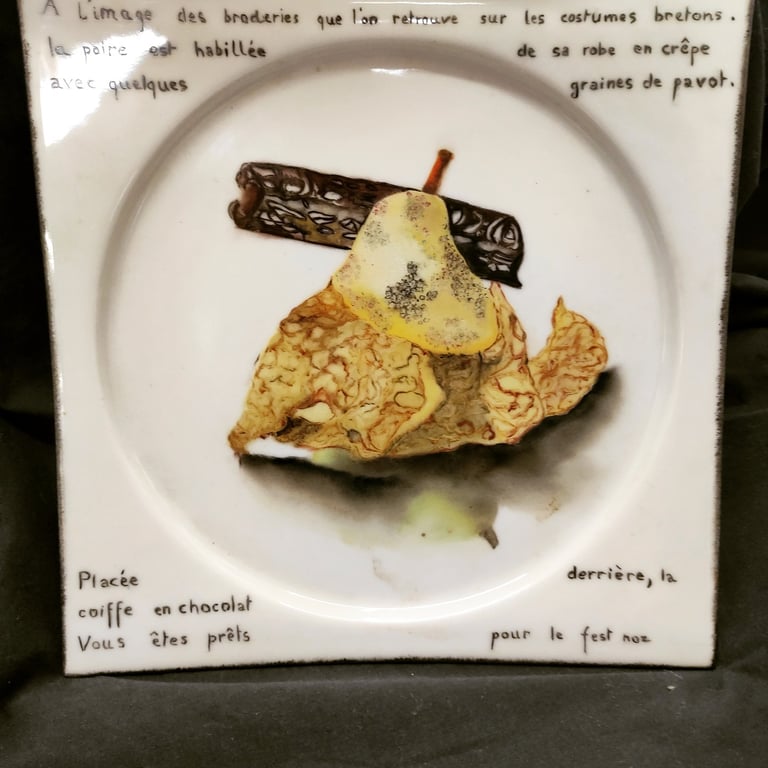 A l'image des broderies que l'on retrouve sur les costumes bretons.
la poire est habillée de sa robe en crêpe
avec quelques graines de pavot.
Placée derrière, la
coiffe en chocolat
Vous êtes prêts pour le fest noz